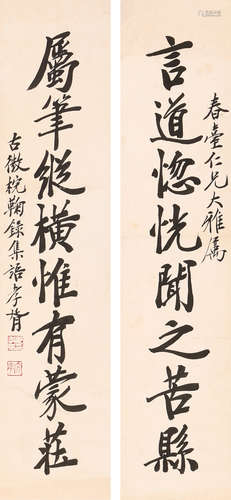 春臺仁兄大雅屬
言道惚恍聞之苦縣
屬筆縱橫惟有蒙莊
古微梡鞠錄集語孝胥